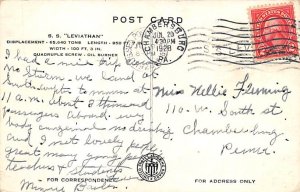 POST CARD
S. S. "LEVIATHAN"
DISPLACEMENT - 65,640 TONS LENGTH - 950 FT
WIDTH - 100 FT. 3 IN
QUADRUPLE SCREW : OIL BURNER
CHAMBERSBURG
JUL 20
4:30 PM
1928
PA.
I had a nice trip over
no storm, we land at
Southampton to-day at
11 a.m. about a thousand
passengers aboard. every
body congenial no drinking
and I met lovely people
great many young people
teachers & students
Minnie
Miss Nellie Fleming
110 W. South St
Chambersburg
Penna.
FOR CORRESPONDENCE
FOR ADDRESS ONLY